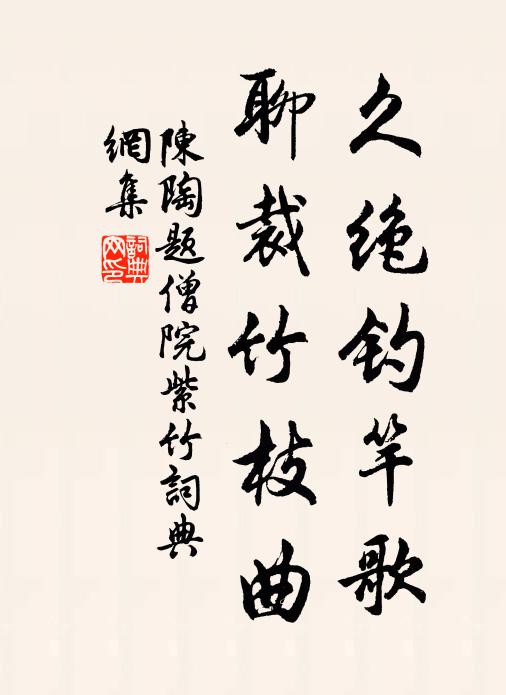 久绝钓竿歌
聊裁竹枝曲
陳陶题僧院紫竹詞典
網集
詞典
网印